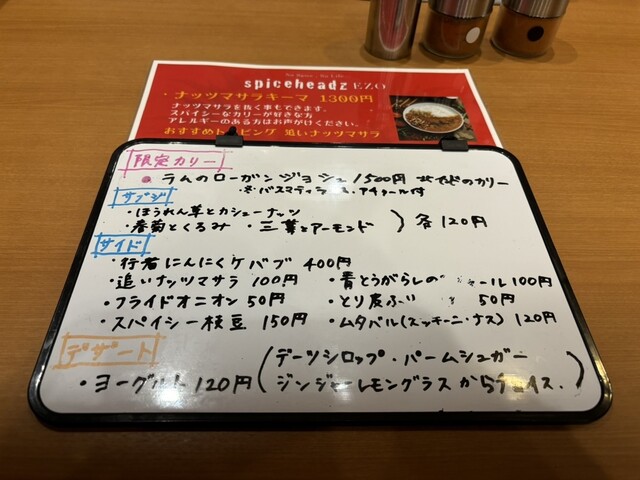 No Spice, No Life
spiceheadz EZO
・ナッツマサラキーマ 1300円
ナッツマサラを抜く事もできます。
スパイシーなカリーが好きな方
アレルギーのある方はお声がけください。
おすすめトッピング 追いナッツマサラ
限定カリー
ラムのローガンジョシュ 1500円 北インドのカリー
バスマティライス、アチャール付
サブジ
・ほうれん草とカシューナッツ
・春菊とくるみ ・三葉とアーモンド ) 各120円
サイド
・行者にんにくケバブ 400円
・追いナッツマサラ 100円 ・青とうがらしの ール100円
・フライドオニオン 50円 ・とり皮ふり 50円
・スパイシー枝豆 150円 ・ムタバル(ズッキーニ・ナス) 120円
デザート
・ヨーグルト 120円 (デーツシロップ・パームシュガー
ジンジャーレモングラスからチョイス、)